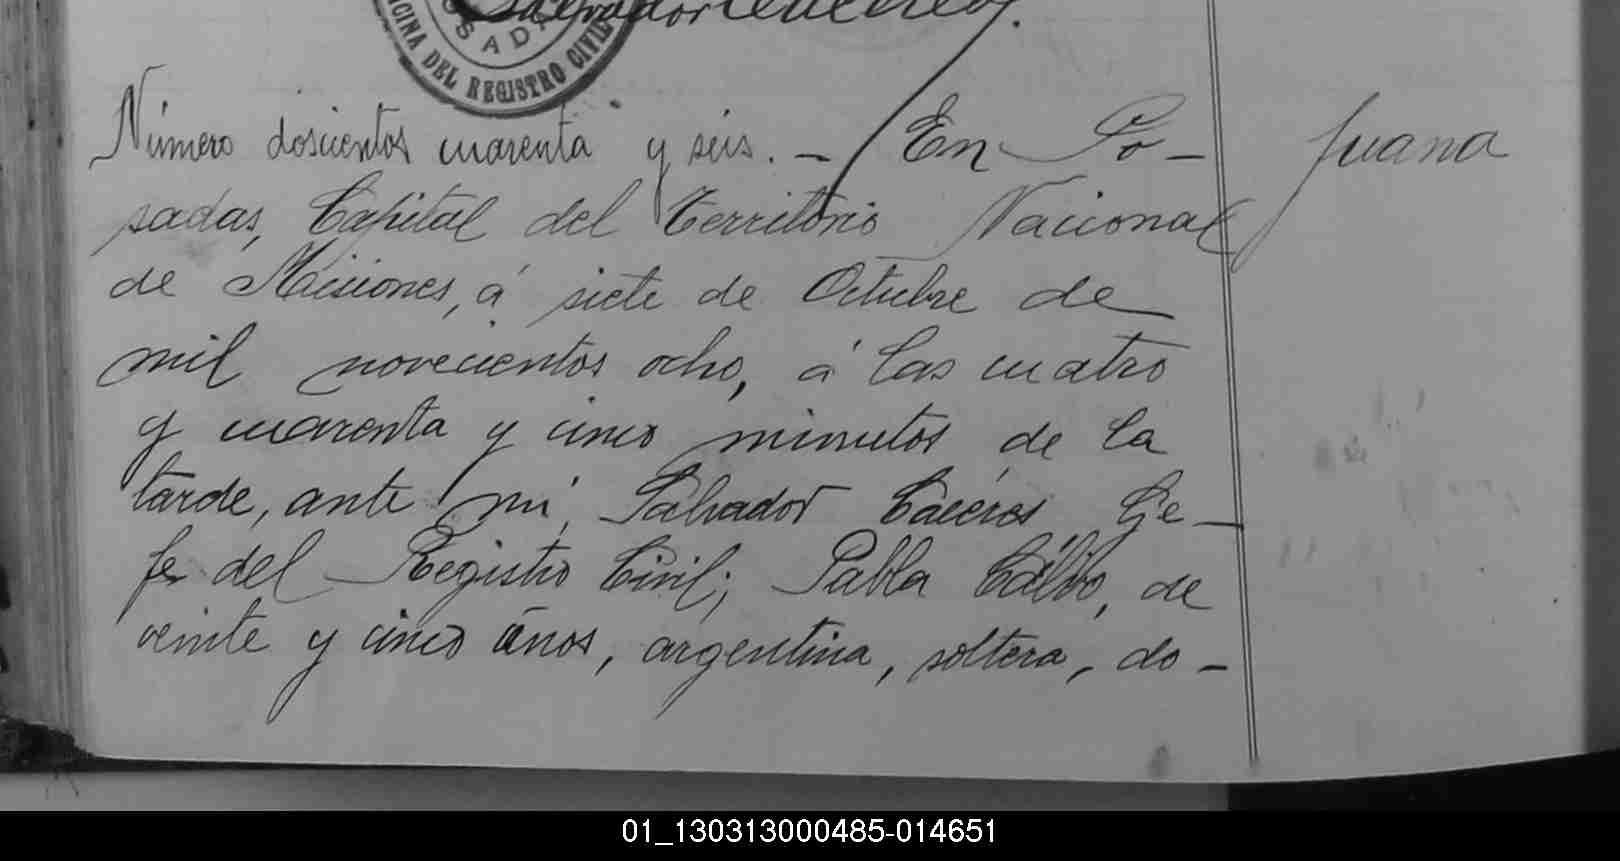 Salvador Cáceres.
POSADAS
OFICINA DEL REGISTRO CIVIL
Número doscientos cuarenta y seis. — En Po-
sadas, Capital del Territorio Nacional
de Misiones, á siete de Octubre de
mil novecientos ocho, á las cuatro
y cuarenta y cinco minutos de la
tarde, ante mi, Salvador Cáceres Ge-
fe del Registro Civil; Pabla Cálbo, de
veinte y cinco años, argentina, soltera, do-
Juana
01_130313000485-014651